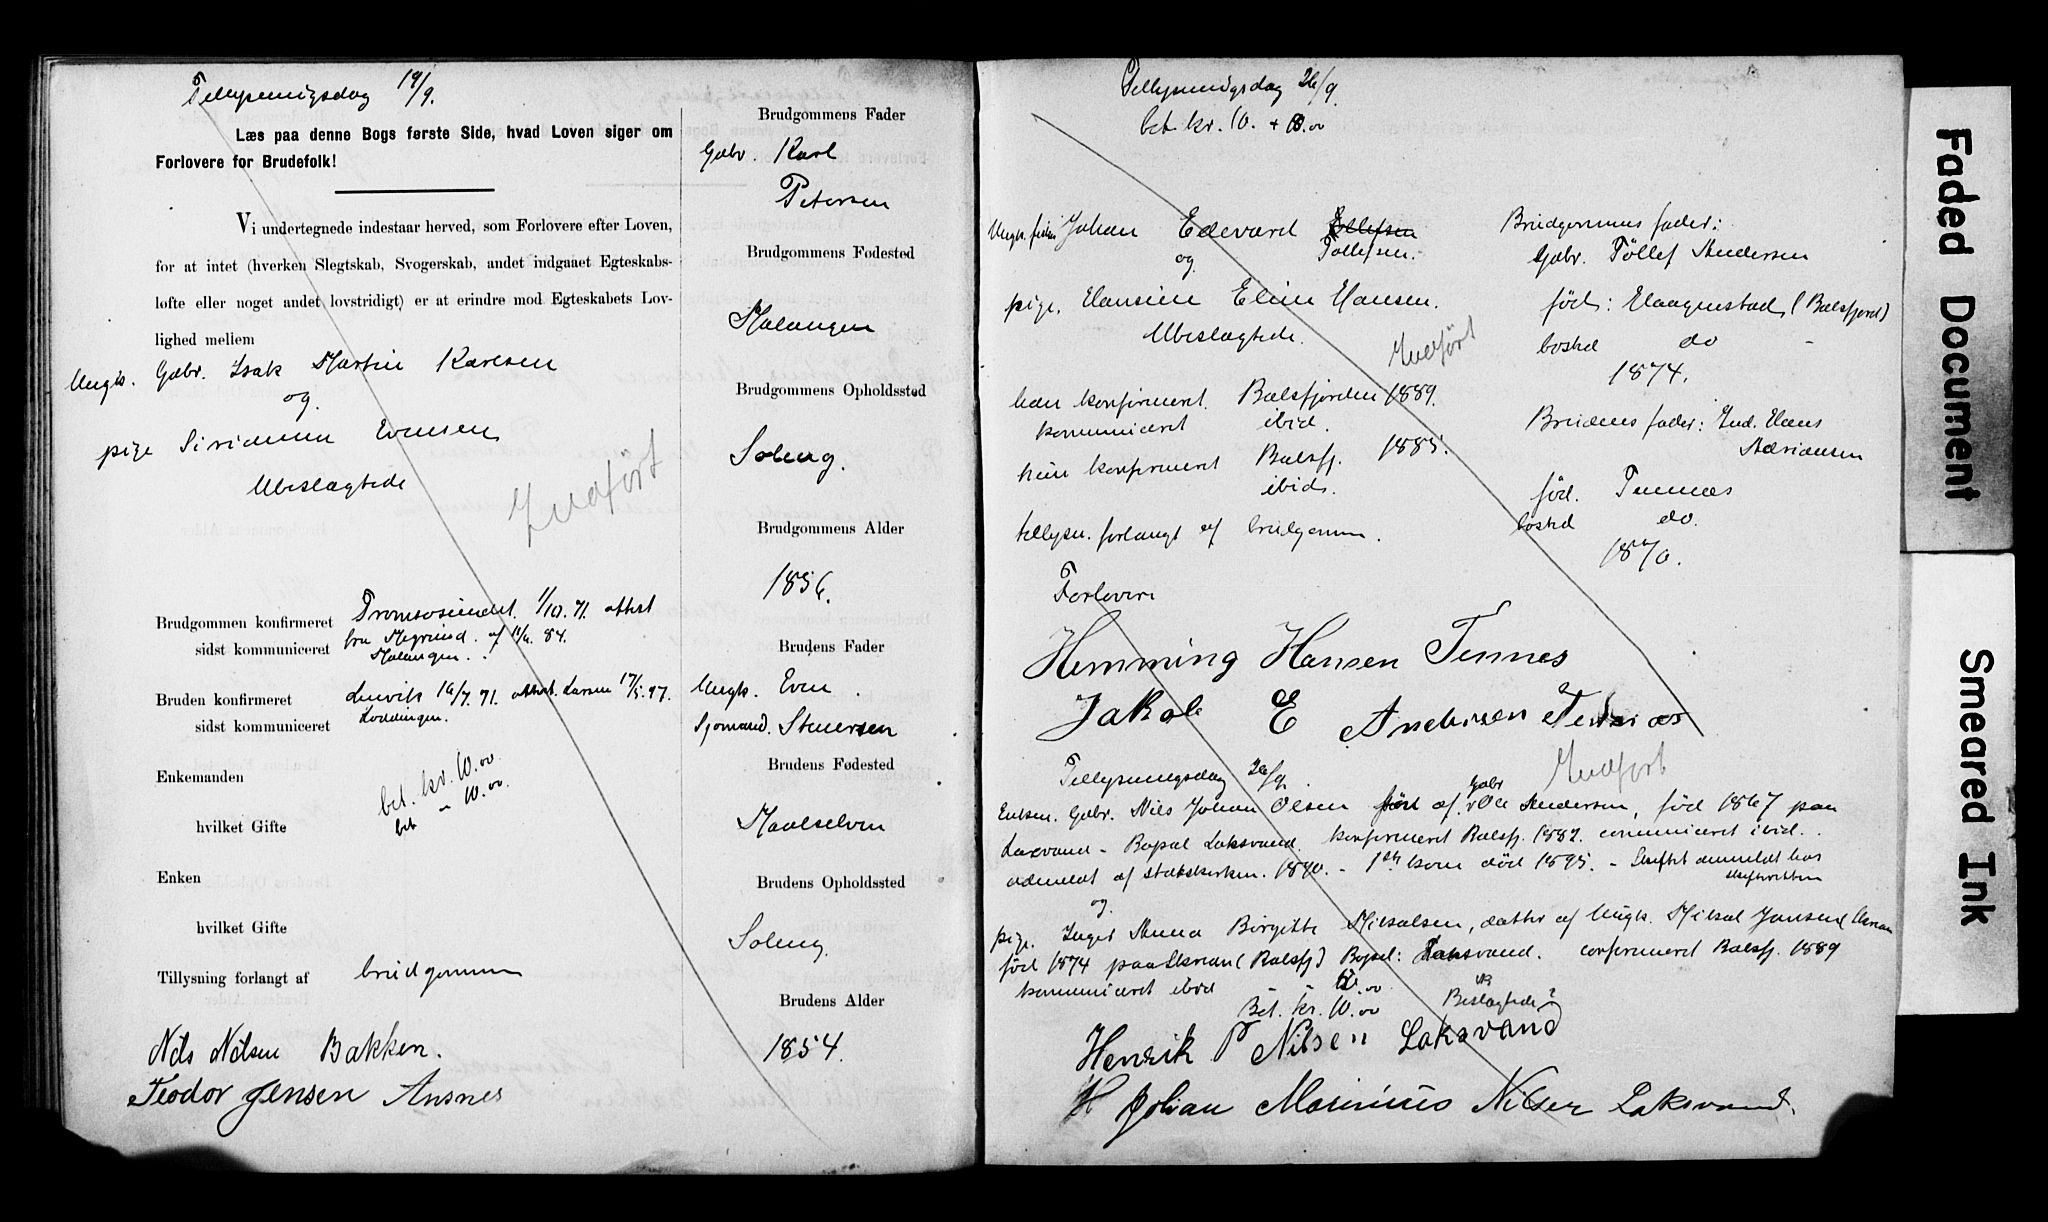 Tillysningsdag 19/9.
Læs paa denne Bogs første Side, hvad Loven siger om
Forlovere for Brudefolk!
Vi undertegnede indestaar herved, som Forlovere efter Loven,
for at intet (hverken Slegtskab, Svogerskab, andet indgaaet Egteskabs-
løfte eller noget andet lovstridigt) er at erindre mod Egteskabets Lov-
lighed mellem
Ungk. Gbr. Isak Martin Karlsen
og
pige Evensen
Ubeslægtede
Indført
Brudgommen konfirmeret Tromsøsundet 1/10.71. attest
sidst kommuniceret fra af 84.
Malangen.
Bruden konfirmeret Lenvik 16/7.71. attest. Larsen 17/5.97.
sidst kommuniceret
Enkemanden bet. kr. 10.00
bet " 10.00.
hvilket Gifte
Enken
hvilket Gifte
Tillysning forlangt af brudgommen
Nils Nilsen Bakken.
Teodor Jensen Ansnes
Brudgommens Fader
Gbr. Karl
Petersen
Brudgommens Fødested
Malangen
Brudgommens Opholdssted
Soleng.
Brudgommens Alder
1856.
Brudens Fader
Ungk. Even
Sjømand.
Brudens Fødested
Maalselven
Brudens Opholdssted
Soleng.
Brudens Alder
1854.
Tillysningsdag 26/9.
bet. kr. 10. + 10.00
Ungk. Johan Edevard Tollefsen.
og
pige. Hansine Eline Hansen.
Ubeslægtede.
Indført
han konfirmeret Balsfjorden 1889.
kommuniceret ibid.
hun konfirmeret Balsfj. 1885.
ibid.
tillysn. forlangt af brudgommen.
Brudgommens fader:
Gbr. Töllef Andersen
fød: (Balsfjord)
bosted do
1874.
Brudens fader: Ind. Hans
Adriansen
fød. Tennes
bosted do.
1870.
Forlovere
Hemming Hansen Tennes
Jakob E Andersen
Tillysningsdag 26/9. Indført
Enkem. Gbr. Nils Johan Olsen søn af Gbr Ole Andersen, fød 1867 paa
Laxvand - Bopæl Laksvand. konfirmeret Balsfj. 1882. communiceret ibid.
udmeldt af Statskirken. 1890. - 1ste kone død 1895. - Skiftet anmeldt hos
skifteretten
og
pige. Inger Anna Birgitte Mikalsen, datter af Ungk. Mikal Jansen
fød 1874 paa (Balsfj) Bopæl: Laksvand. confirmeret Balsfj. 1889
kommuniceret ibid
Bet. kr. 10.00 Beslægtede?
Henrik P Nilsen Laksvand
Johan Marinius Nilsen Laksvand.
Faded Document
Smeared Ink